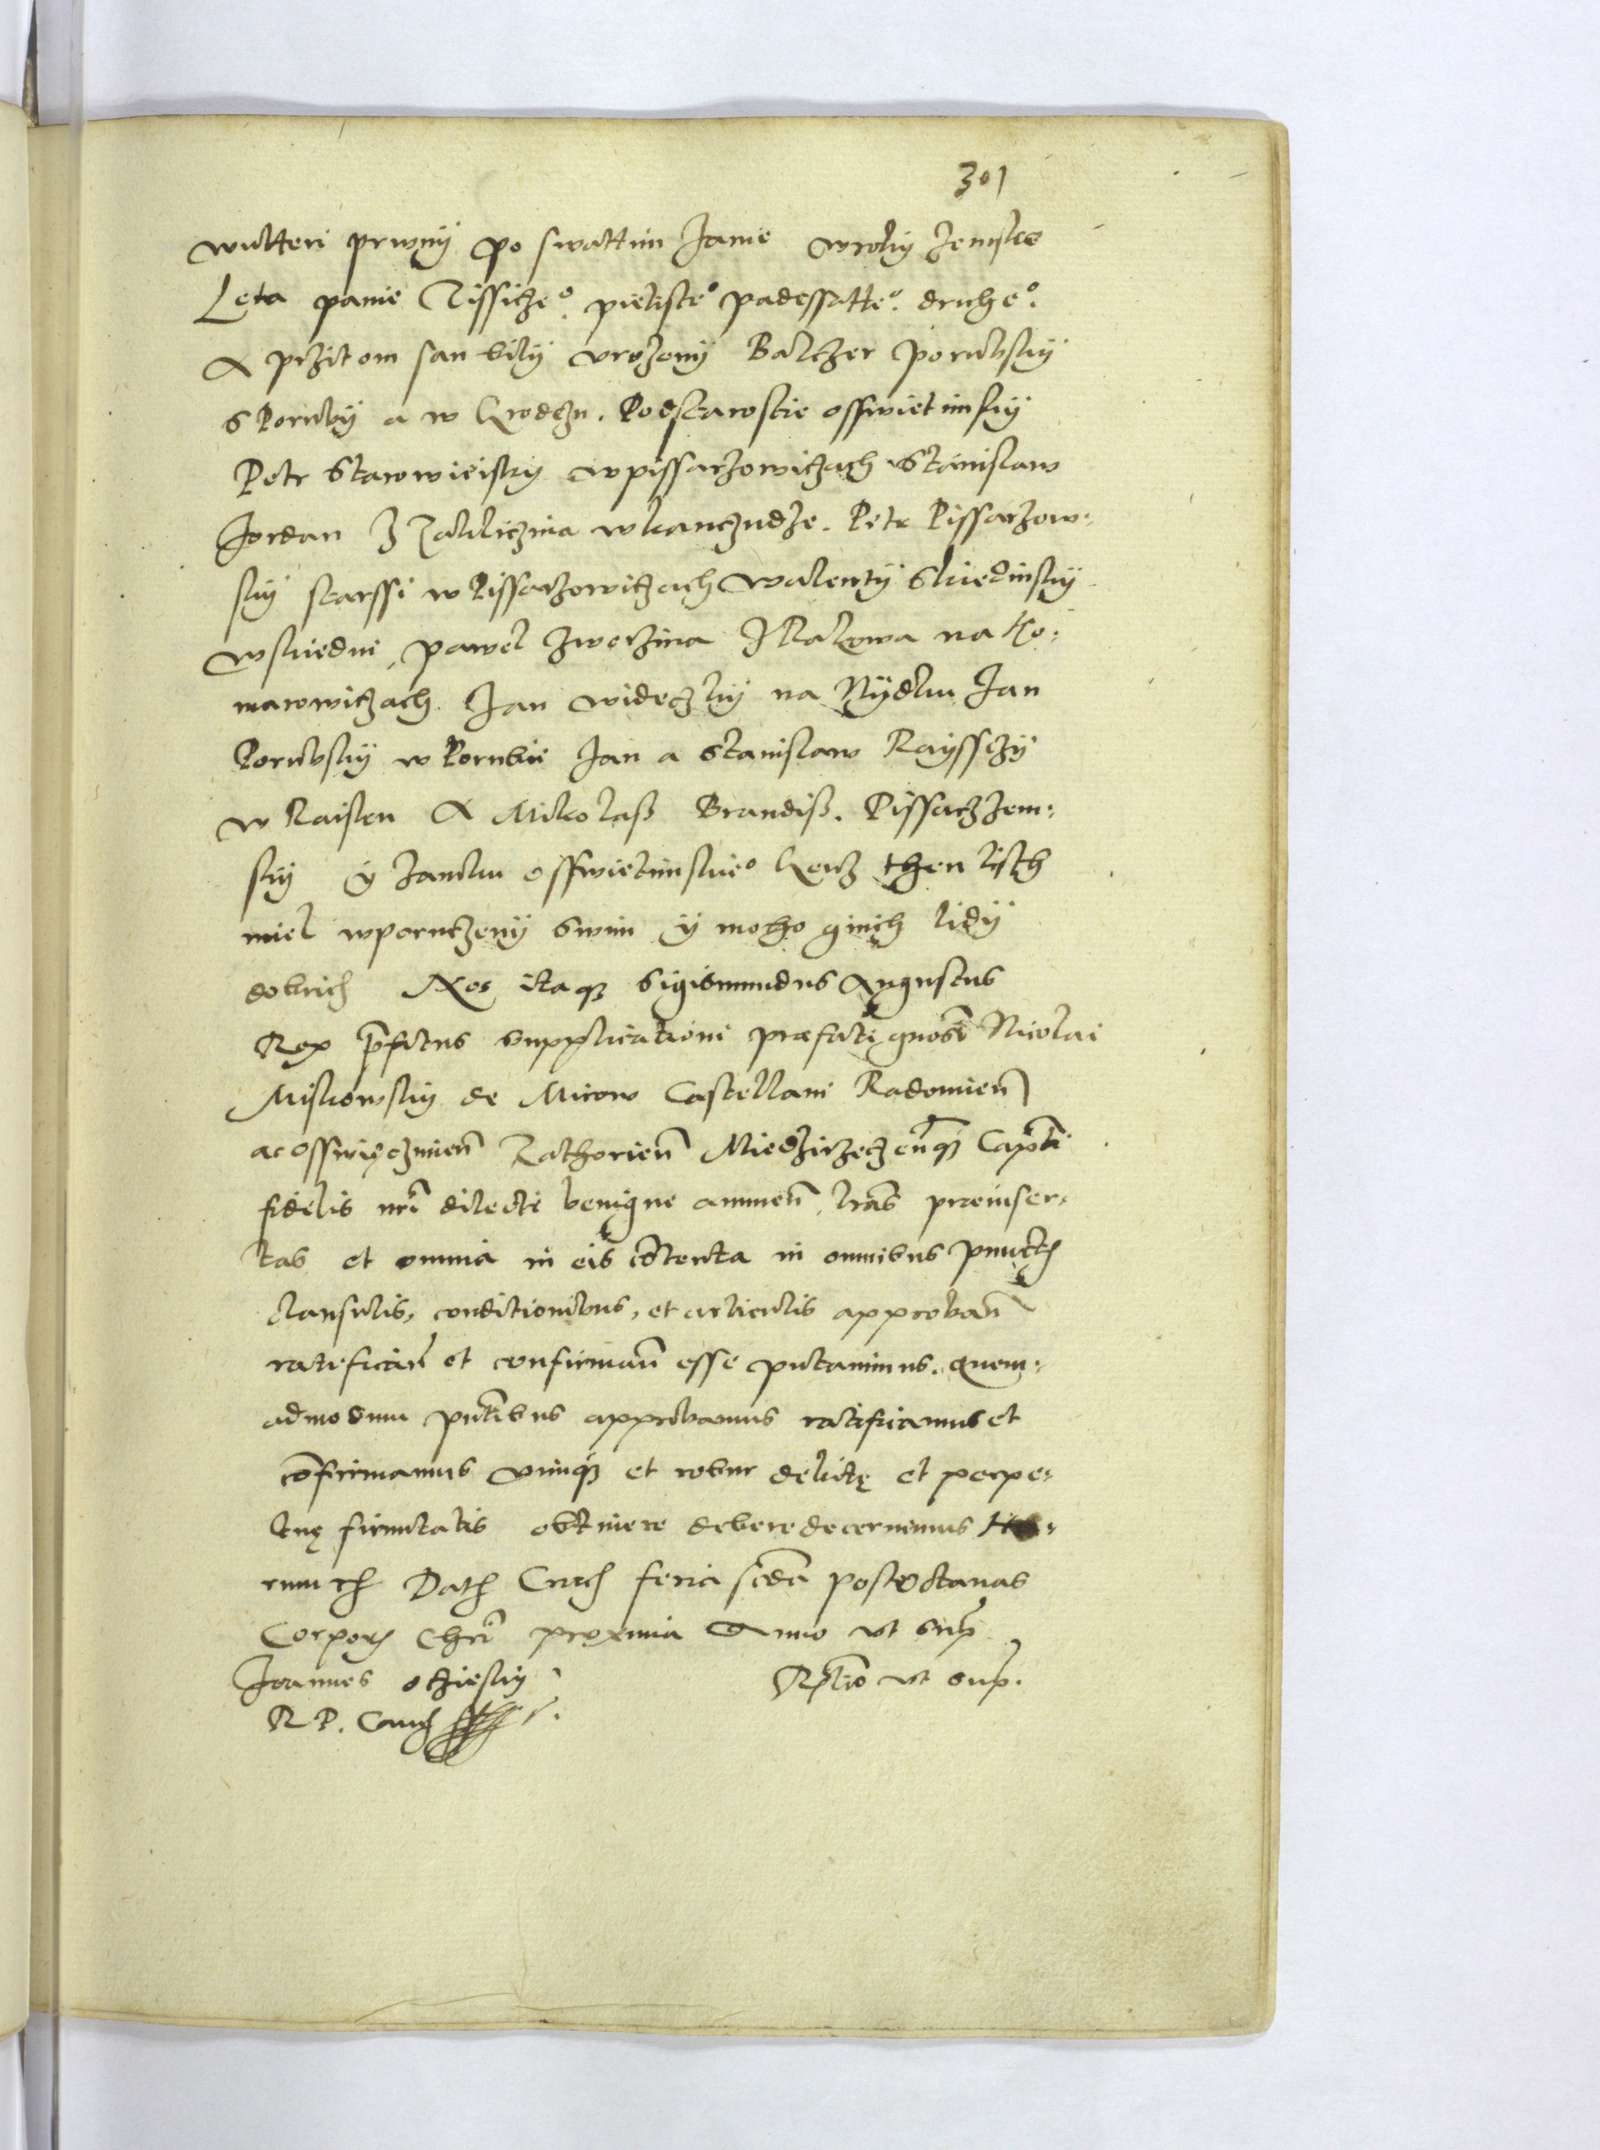 301
wulteri prwnij po swattim Janie wroky Zemske
Leta panie Tissicze⁰. pietiste⁰ padessatte⁰. druhe⁰.
A przitom san bilij vrozonij Baltzer Porubskij
s Porubij a w Grodczu. Podstaroscie osswietimskij
Petr Starowieiskij w pissarzowiczach Stanislaw
Jordan Z Zakliczina w kanczudze. Petr Pissarzow:
skij starssi w Pissarzowiczach Walentij Skiedinskij
w skiedni, pawel Zwerzina Z na Ko:
marowiczach. Jan widerzkij na Nijdku Jan
Porubskij w Porubie Jan a Stanislaw Raijssczij
w Raisku A Mikolass Brandiss. Pissarz Zem:
skij ij Zamku osswietimskie⁰ kenz then listh
miel wporuczenij swim ij moho ginich lidij
dobrich Nos itaqз Sigismundus Augustus
Rex p̄fatus supplicationi præfati gnosi Nicolai
Miskowskij de Mirow Castellani Radomien̄
ac osswięczimien̄ Zathorien̄ Miedzirzeczen̄qз Capti
fidelis nr̄i dilecti benigne annuen̄ lrās præinser:
tas et omnia in eis cōtenta in omnibus punctis
clausulis, conditionibus, et articulis approban̄
ratifican̄ et confirman̄ esse putauimus. quem:
admodum pn̄tibus approbamus ratificamus et
cōfirmamus vimqз et robur debitę et perpe:
tuę firmitatis obtinere debere decernimus Ha:
rum Dat Crac feria scd̄a post octauas
Corporis Chri proxima Anno vt supra
Joannes oczieskij Rl̄tio vt supra.
R P. Canc